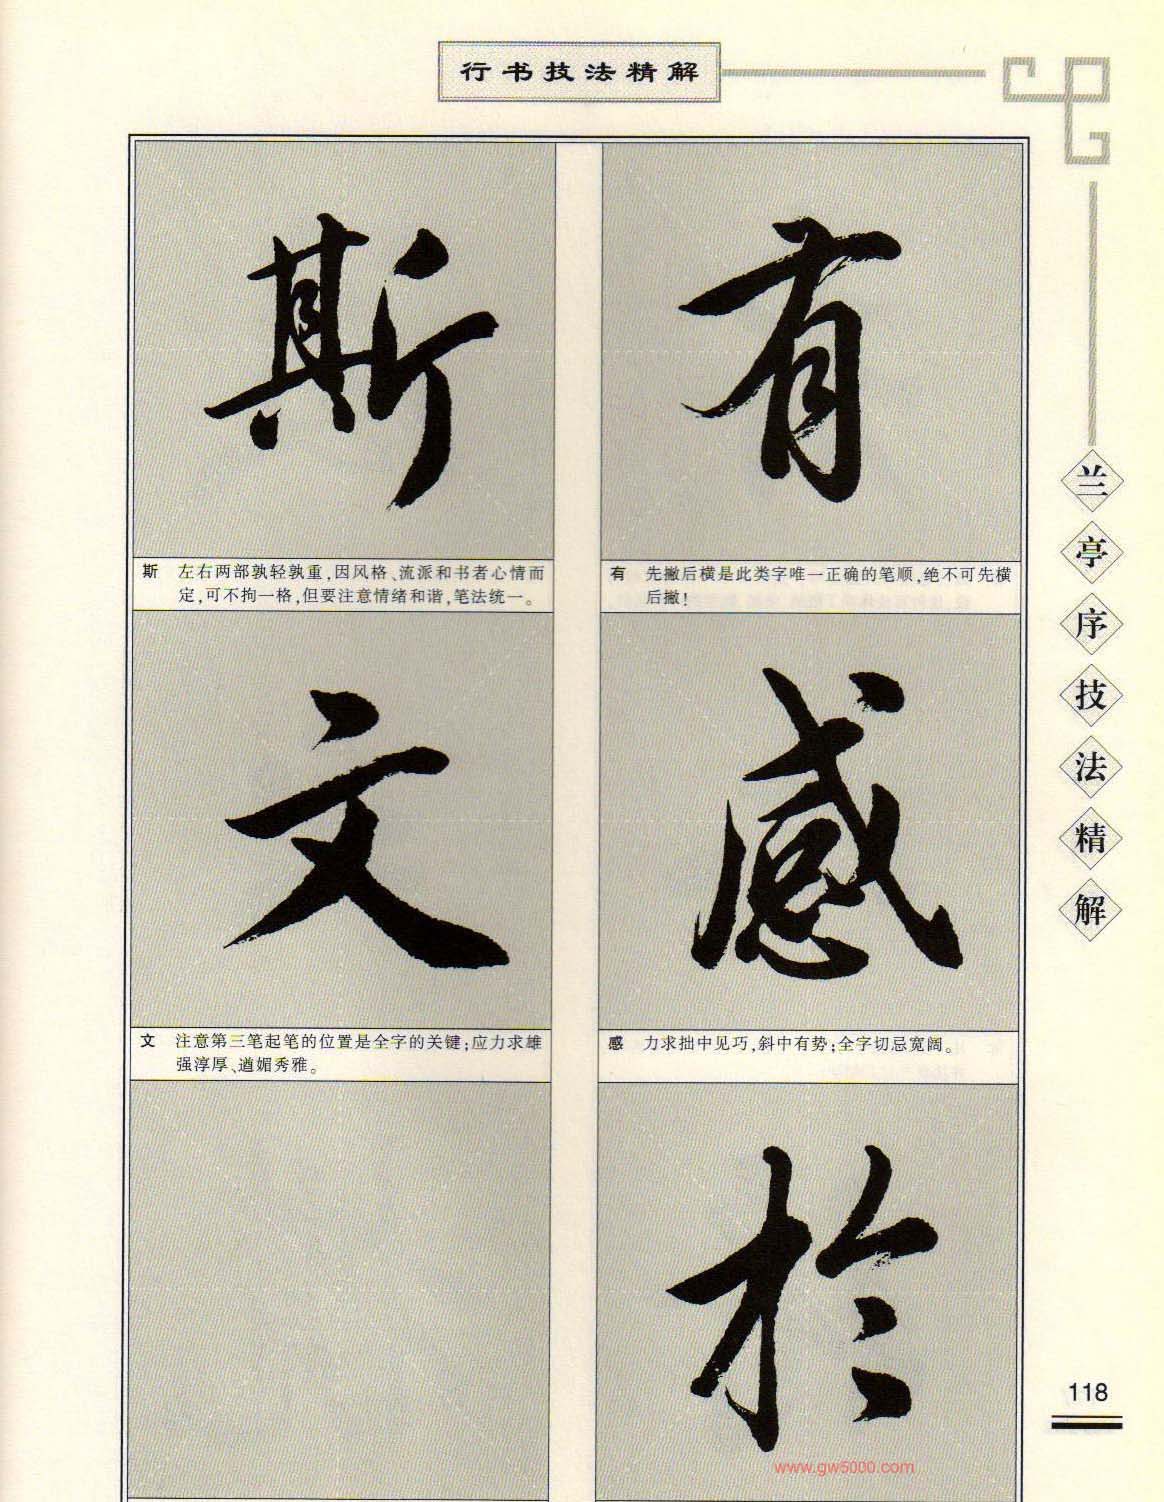 行书技法精解
有
有 先撇后横是此类字唯一正确的笔顺,绝不可先横
后撇!
感
感 力求拙中见巧,斜中有势;全字切忌宽阔。
於
斯
斯 左右两部孰轻孰重,因风格、流派和书者心情而
定,可不拘一格,但要注意情绪和谐,笔法统一。
文
文 注意第三笔起笔的位置是全字的关键;应力求雄
强淳厚、遒媚秀雅。
兰亭序技法精解
118
www.gw5000.com